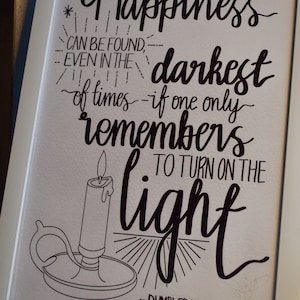 Happiness
CAN BE FOUND,
EVEN IN THE
darkest
of times if one only
remembers
TO TURN ON THE
light